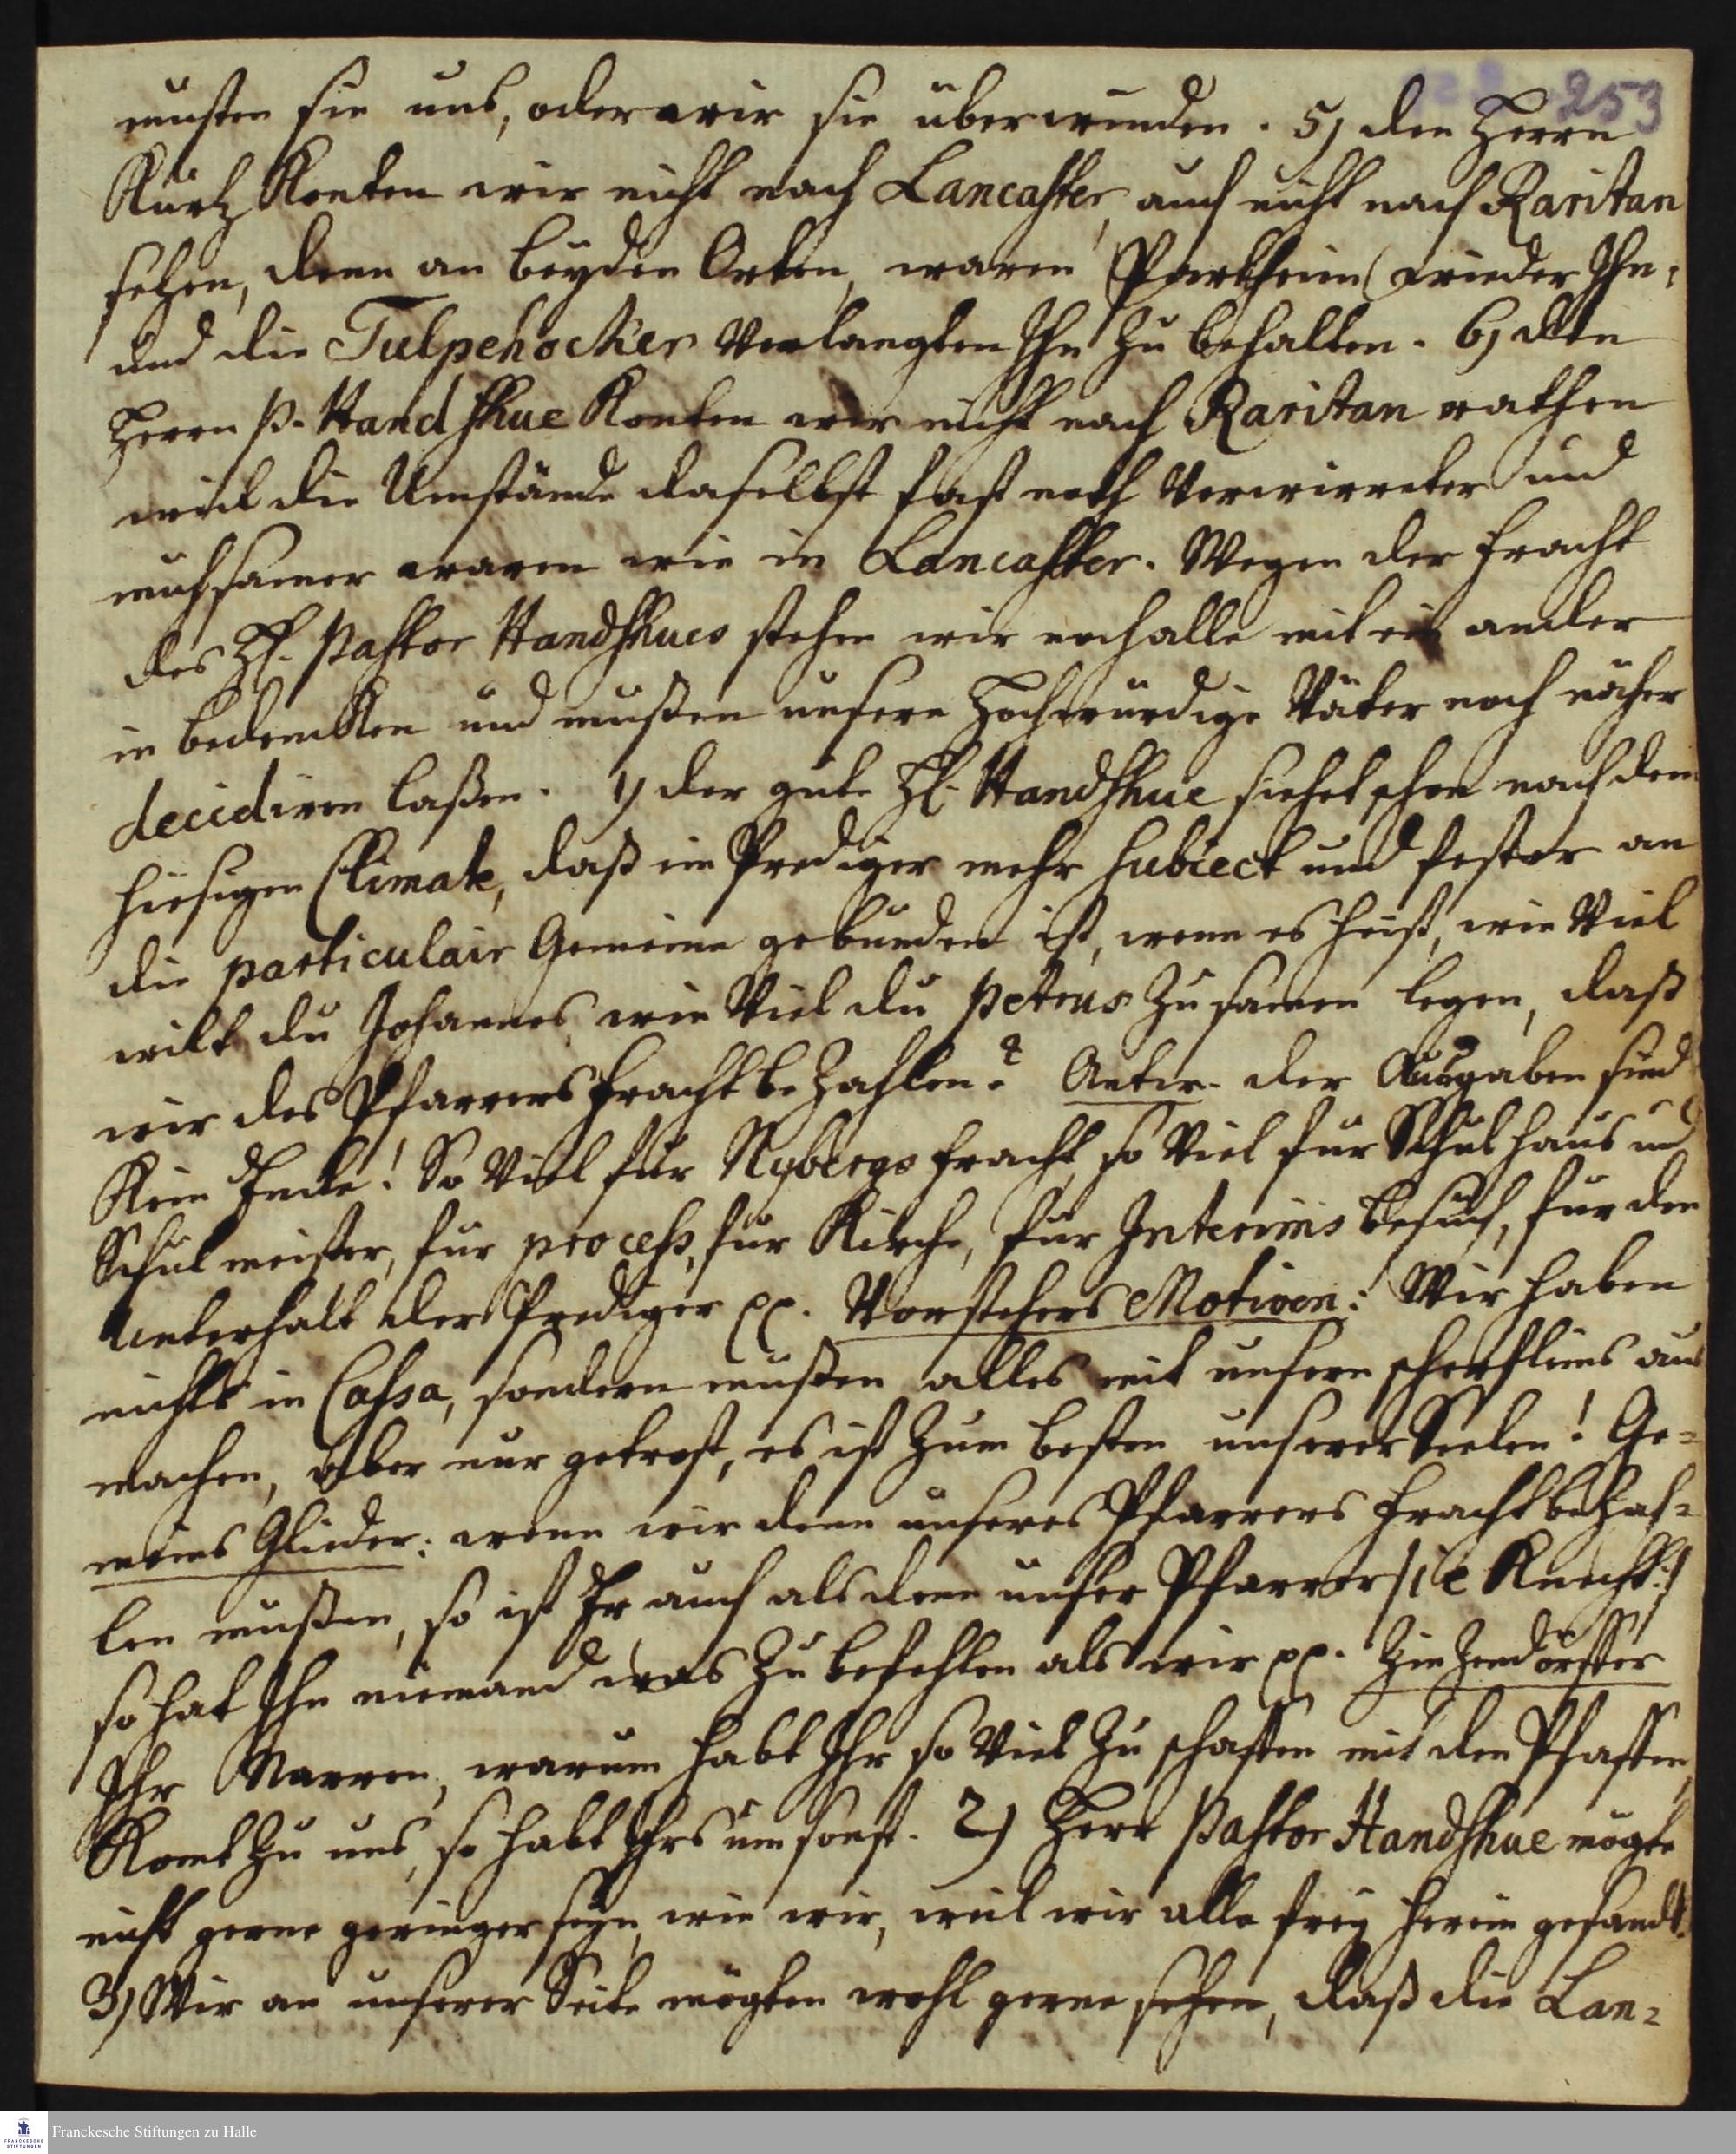 253
musten sie uns, oder wir sie überwinden. 5) den Herrn
Kurtz konten wir nicht nach Lancaster, auch nicht nach Raritan
setzen, denn an beyden Orten, waren Partheien wieder Ihn,
und die Tulpehocker verlangten Ihn zu behalten. 6) den
Herrn P. Handshue konten wir nicht nach Raritan rathen
weil die Umstände daselbst fast noch verwirreter und
mühsamer waren wie in Lancaster. Wegen der Fracht
des H. Pastor Handshues stehen wir noch alle mit ein ander
in bedencken und müßen unsere Hochwürdige Väter noch näher
decidiren laßen. 1) der gute H. Handshue siehet schon nach dem
hiesigen Climate, daß ein Prediger mehr subiect und fester an
die particulair Gemeine gebunden ist, wenn es heist, wie viel
wilt du Johannes, wie viel du Petrus zusamen legen, daß
wir des Pfarrers Fracht bezahlen? Antw. der Ausgaben sind
kein Ende! So viel für Nybergs fracht, so viel für Schulhaus und
Schulmeister, für process, für Kirche, für Interims besuch, für den
Unterhalt der Prediger pp. Vorstehers Motiven: Wir haben
nichts in Cassa, sondern müßen alles mit unsern scherfleins aus
machen, Aber nur getrost, es ist zum besten unserer Seelen! Ge=
meins Glieder: wenn wir denn unseres Pfarrers Fracht bezah=
len müßen, so ist Er auch als denn unser Pfarrer /: i e Knecht :/
so hat Ihn niemand was zu befehlen als wir pp. Zinzendörffer
Ihr Narren, warum habt Ihr so viel zu schaffen mit den Pfaffen,
Komt zu uns, so habt Ihrs um sonst. 2) Herr Pastor Handshue mögte
nicht gerne geringer seyn, wie wir, weil wir alle frey herein gesandt.
3) Wir an unserer Seite mögten wohl gerne sehen, daß die Lan=
Franckesche Stiftungen zu Halle